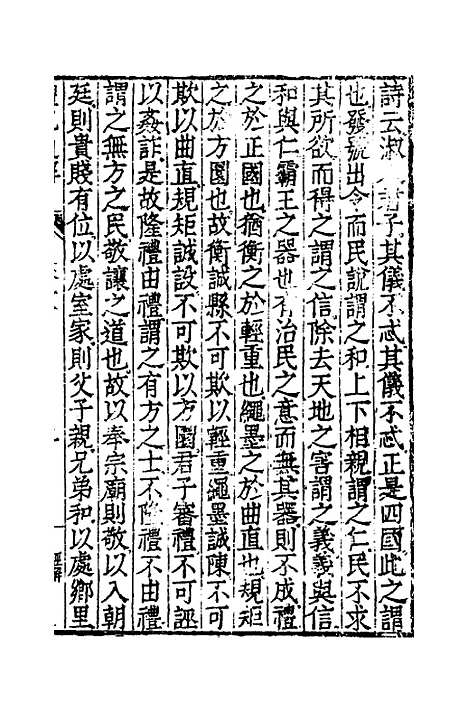 詩云淑人君子其儀不忒其儀不忒正是四國此之謂
也發號出令而民說謂之和上下相親謂之仁民不求
其所欲而得之謂之信除去天地之害謂之義義與信
和與仁霸王之器也有治民之意而無其器則不成禮
之於正國也猶衡之於輕重也繩墨之於曲直也規矩
之於方圜也故衡誠縣不可欺以輕重繩墨誠陳不可
欺以曲直規矩誠設不可欺以方圜君子審禮不可誣
以姦詐是故隆禮由禮謂之有方之士不隆禮不由禮
謂之無方之民敬讓之道也故以奉宗廟則敬以入朝
廷則貴賤有位以處室家則父子親兄弟和以處鄉里
經解